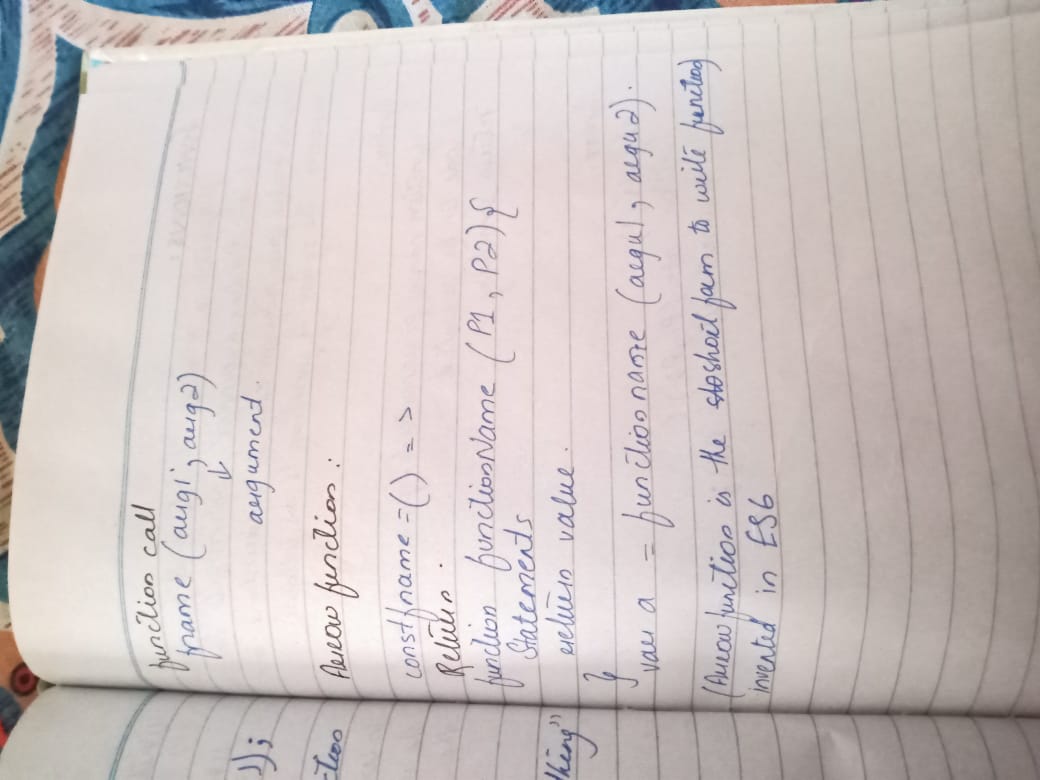 function call
fname (arg1, arg2)
↓
argument.
Arrow function :
const fname = () = >
Return.
function functionName (P1, P2) {
Statements
return value.
}
var a = function name (argu1, argu2).
(Arrow function is the short form to write function)
invented in ES6
1);
-tion
thing"